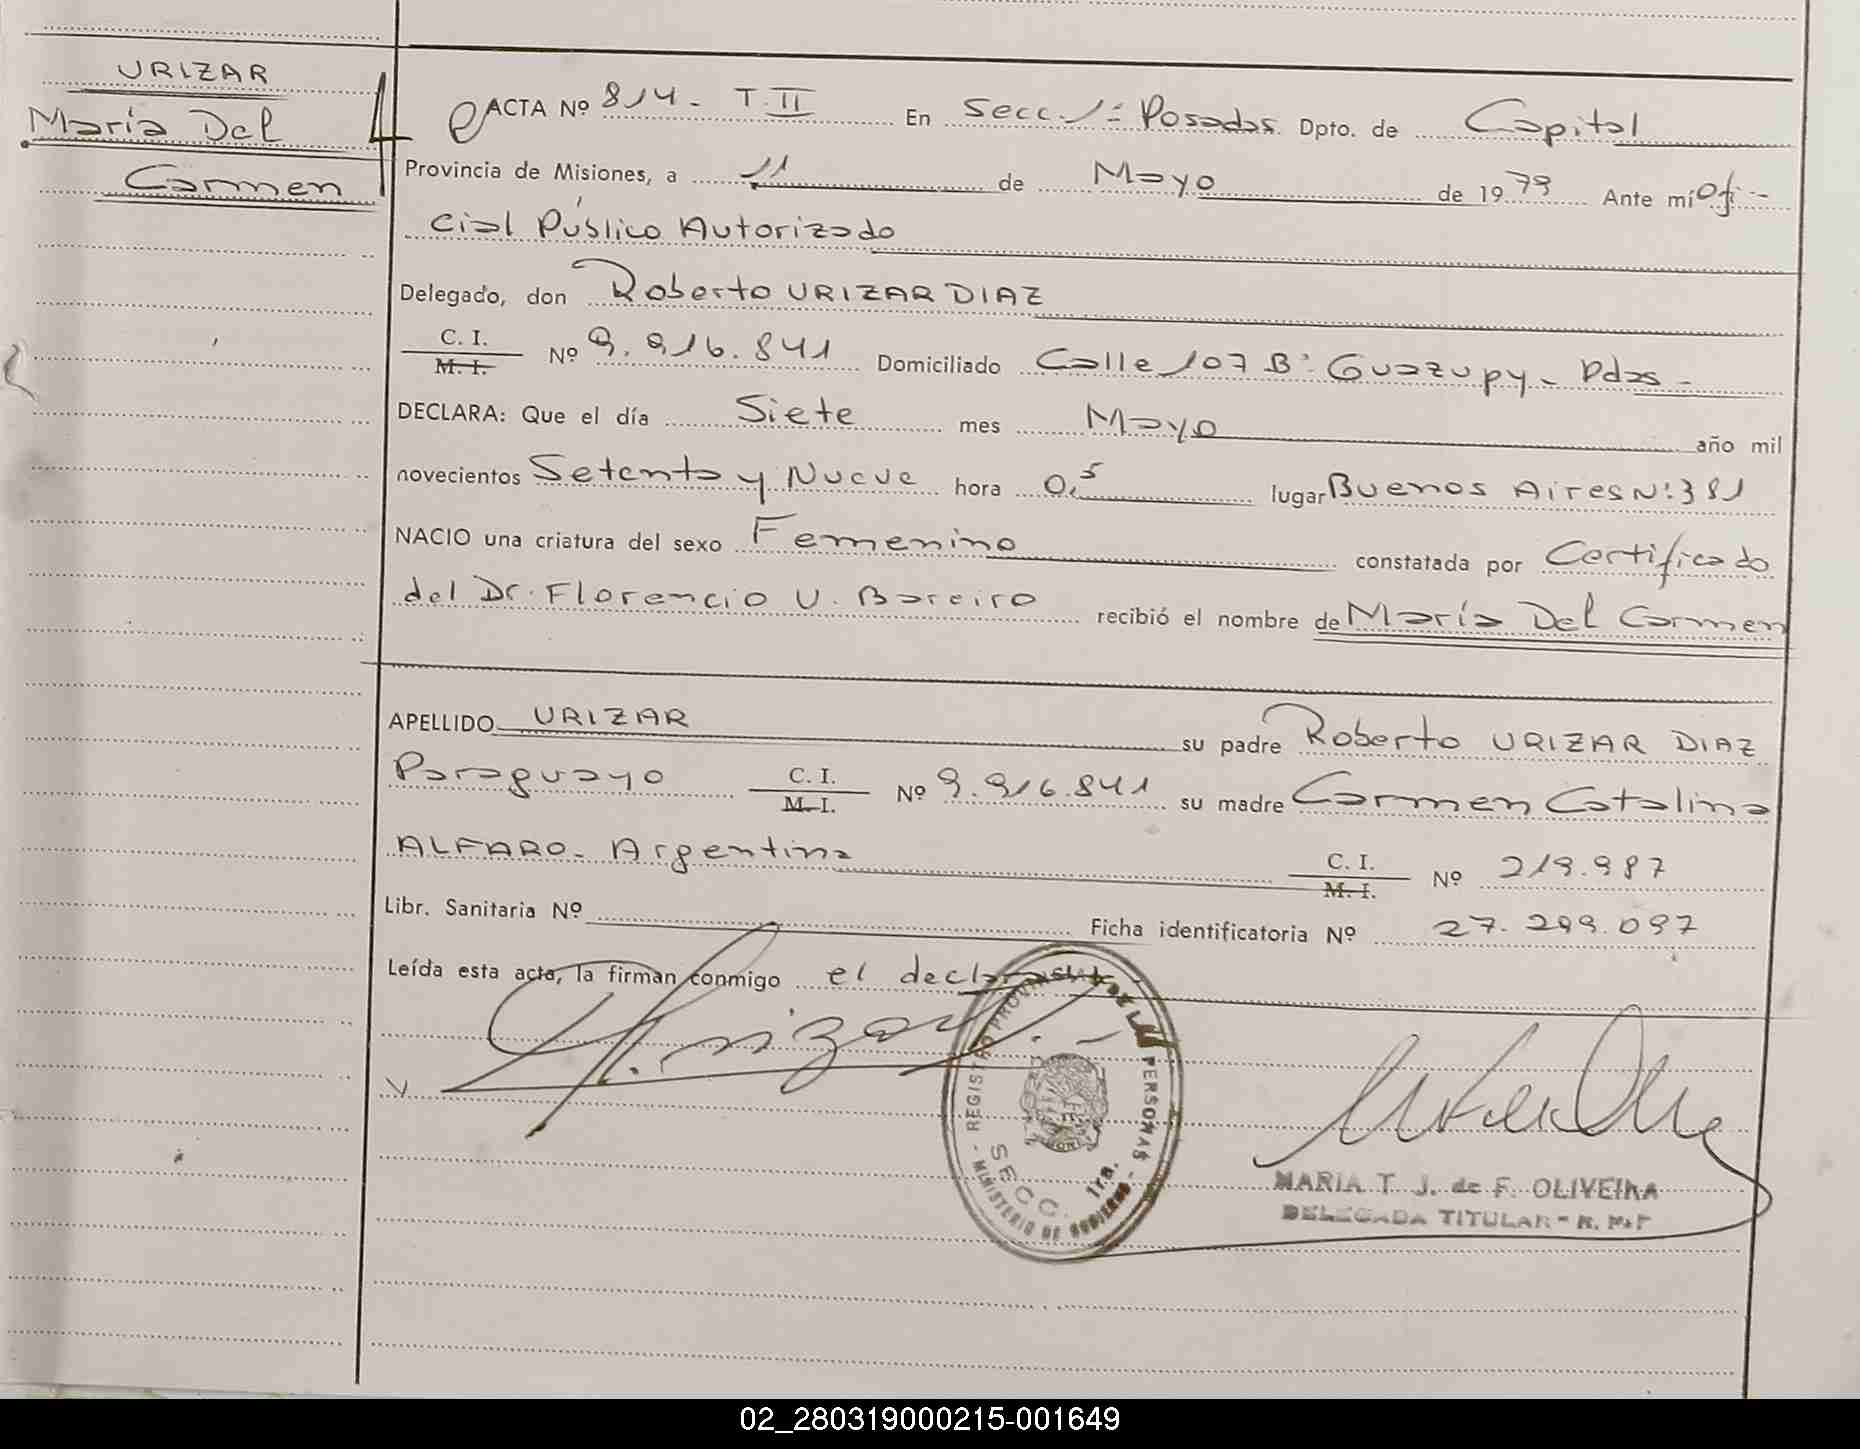 URIZAR
María Del
Carmen
ACTA Nº 814- T.II En Secc. 1ª Posadas. Dpto. de Capital
Provincia de Misiones, a 11 de Mayo de 1979 Ante mí Ofi-
cial Público Autorizado
Delegado, don Roberto URIZAR DIAZ
C. I.
M. I. Nº 9.916.841 Domiciliado Calle 107 Bº Guazupy - Pdas -
DECLARA: Que el día Siete mes Mayo año mil
novecientos Setenta y Nueve hora 0,5 lugar Buenos Aires Nº 381
NACIO una criatura del sexo Femenino constatada por Certificado
del Dr. Florencio V. Bareiro recibió el nombre de María Del Carmen
APELLIDO URIZAR su padre Roberto URIZAR DIAZ
Paraguayo C. I. M. I. Nº 9.916.841 su madre Carmen Catalina
ALFARO - Argentina C. I. M. I. Nº 219.987
Libr. Sanitaria Nº Ficha identificatoria Nº 27.299.097
Leída esta acta, la firman conmigo el declarante
REGISTRO PROVINCIAL DE LAS PERSONAS
SECC. 1ra.
MINISTERIO DE GOBIERNO
MARIA T. J. de F. OLIVEIRA
DELEGADA TITULAR - R.
02_280319000215-001649